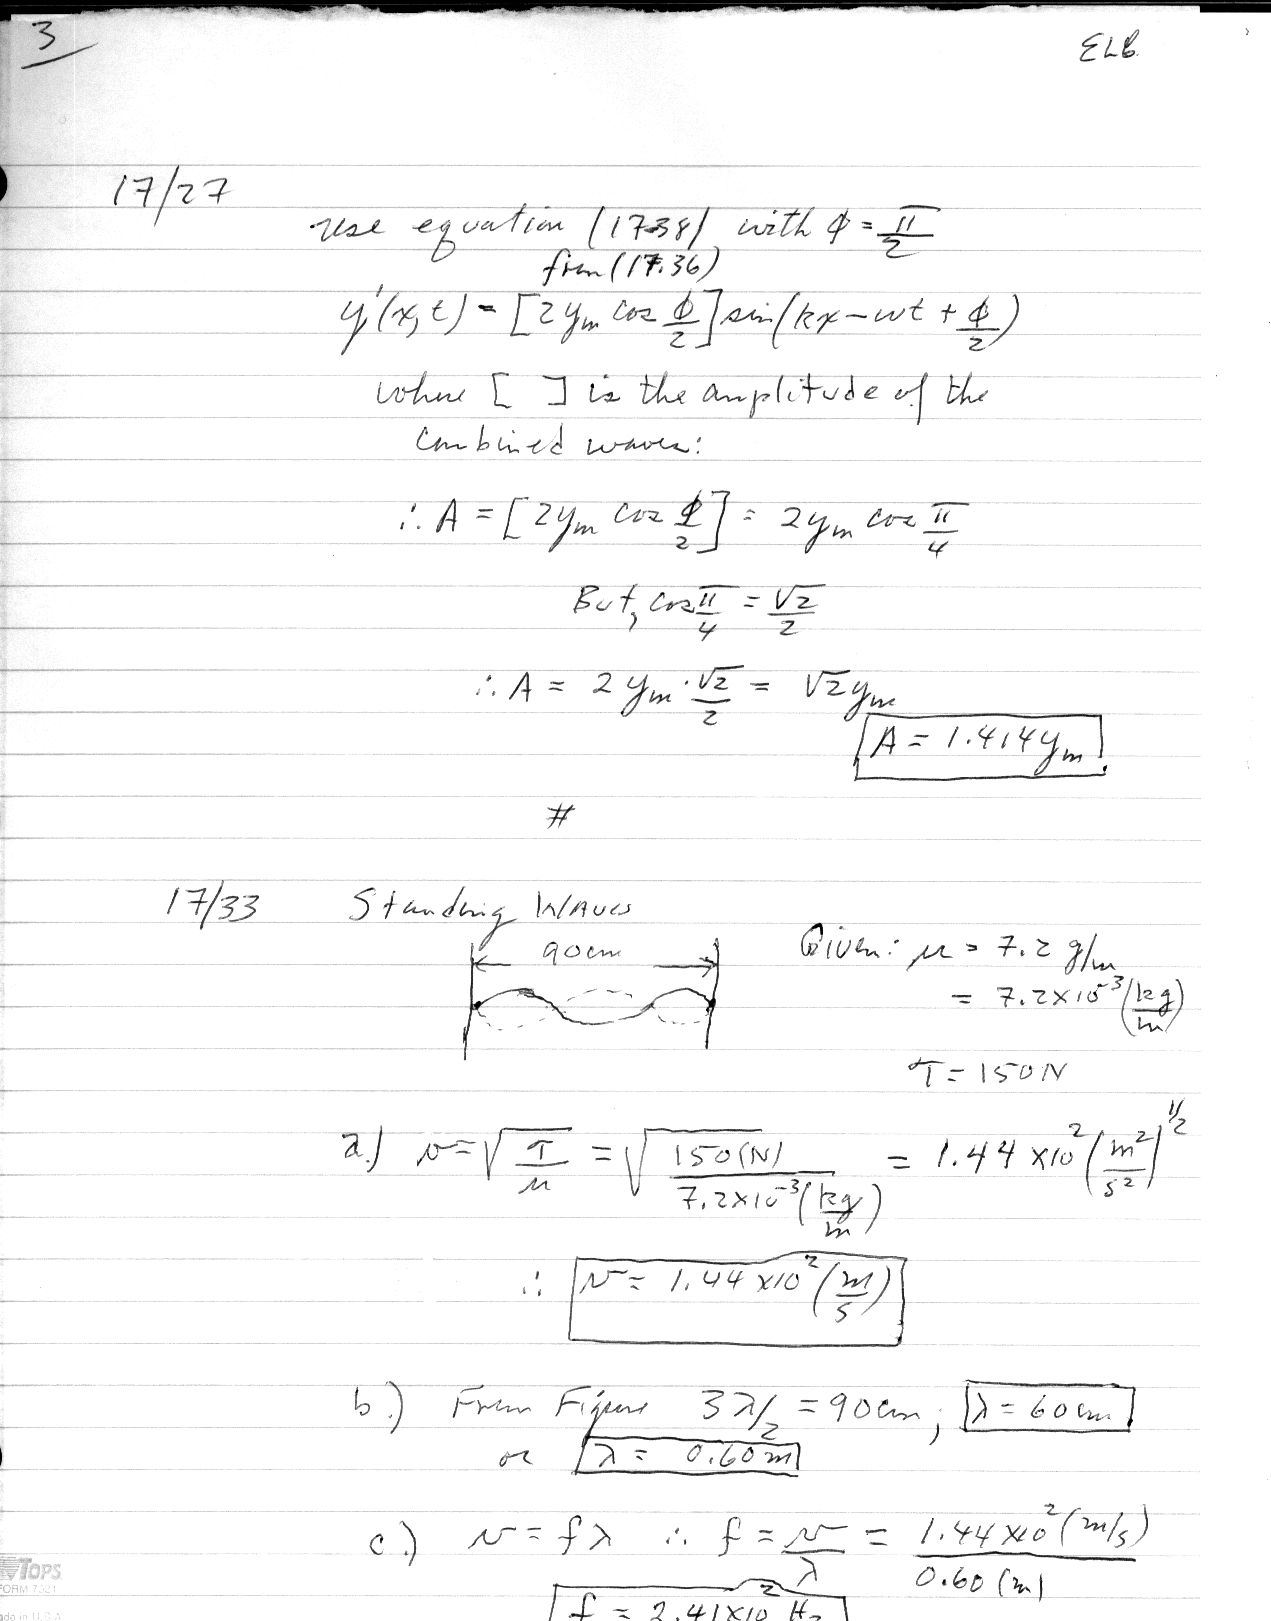 3
ELB
17/27
Use equation (17-38) with ϕ = π/2
from (17.36)
y'(x,t) = [2ym cos ϕ/2] sin(kx - ωt + ϕ/2)
where [ ] is the amplitude of the
combined waves:
∴ A = [2ym cos ϕ/2] = 2ym cos π/4
But, cos π/4 = √2/2
∴ A = 2ym · √2/2 = √2 ym
A = 1.414 ym.
#
17/33 Standing Waves
90cm
Given: μ = 7.2 g/m
= 7.2×10⁻³ (kg/m)
τ = 150N
a.) v = √(τ/μ) = √(150(N)/7.2×10⁻³(kg/m)) = 1.44×10² (m²/s²)^1/2
∴ v = 1.44×10² (m/s)
b.) From Figure 3λ/2 = 90cm; λ = 60cm
or λ = 0.60m
c.) v = fλ ∴ f = v/λ = 1.44×10² (m/s)/0.60 (m)
f = 2.41×10² Hz
TOPS
FORM 7521